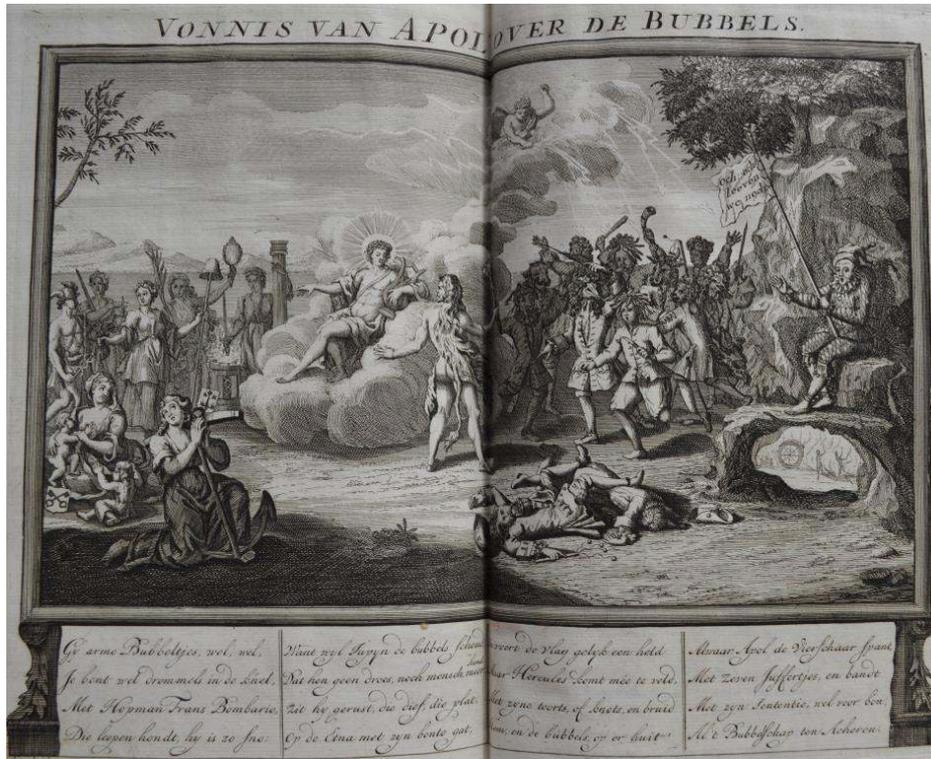 VONNIS VAN APOL OVER DE BUBBELS.
Och, was
Leeven
we nodt
Gy arme Bubbeltjes, wel, wel,
Je bent wel drommels in de knel,
Met Hopman Frans Bombario,
Die leepen hondt, hy is zo sno:
Want wyl Jupyn de bubbels schend
Dat hen geen droes, noch mensch, meer kend
Zit hy gerust, die dief, die plat,
Op de Etna met zyn bonte gat,
voert de vlag gelyk een held
aar Hercules komt mée te veld,
Met zyne toorts, of knots, en bruid
en de bubbels, op er huit
Alwaar Apol de Vierschaar spant
Met zeven Juffertjes, en bandt
Met zyn Sententie, wel voor bon,
Al't Bubbelschap ten Acheron.